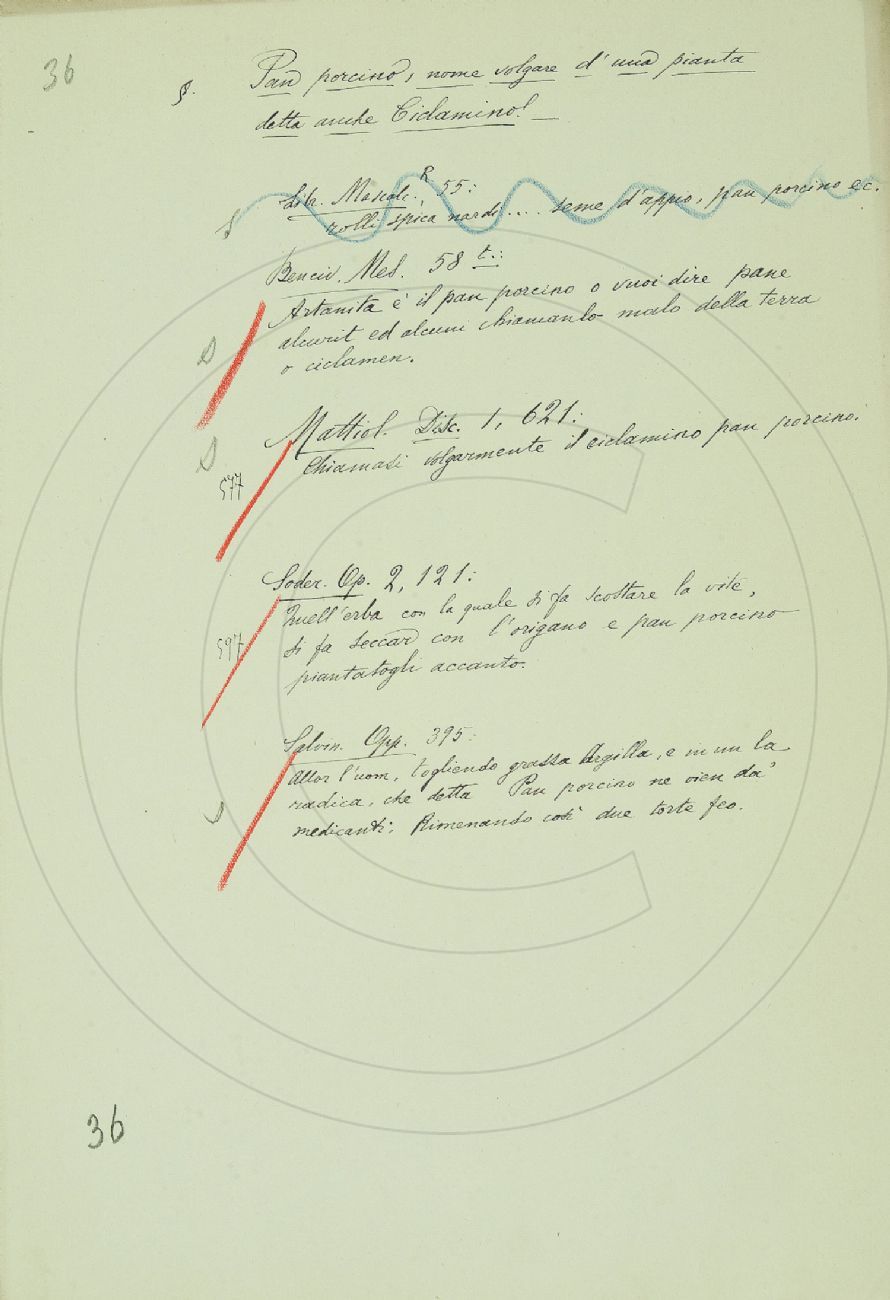 36
§. Pan porcino, nome volgare d'una pianta
detta anche Ciclamino! —
Libr. Mascalc. R 55:
rolli spica nardi .... seme d'appio, pan porcino ec.
Benciv. Mes. 58 t.:
Artanita è il pan porcino o vuoi dire pane
alcurit ed alcuni chiamanlo malo della terra
o ciclamen.
Mattiol. Disc. 1, 621:
Chiamasi volgarmente il ciclamino pan porcino.
577
Soder. Op. 2, 121:
Quell'erba con la quale si fa scostare la vite,
si fa seccar con l'origano e pan porcino
597
piantatogli accanto.
Salvin. Opp. 395:
Allor l'uom, togliendo grassa Argilla, e in un la
radica, che detta Pan porcino ne vien da'
medicanti; Rimenando così due torte feo.
36